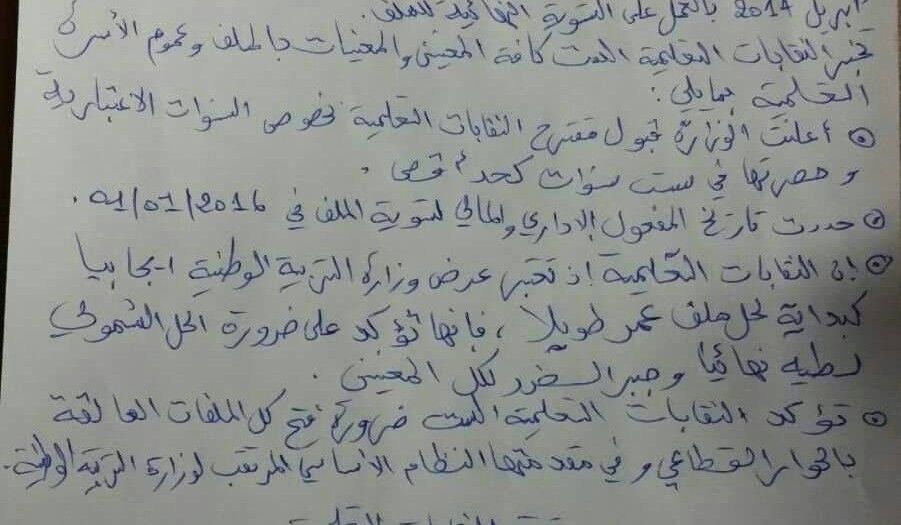 ابريل 2014 بالعمل على التسوية النهائية للملف.
تخبر النقابات التعليمية الست كافة المعنيين والمعنيات بالملف وعموم الأسرة
التعليمية بمايلي:
أعلنت الوزارة قبول مقترح النقابات التعلمية بخصوص السنوات الاعتبارية
وحصرتها في ست سنوات كحد أقصى.
حددت تاريخ المفعول الإداري والمالي لتسوية الملف في 01/01/2016.
إن النقابات التعليمية إذ تعتبر عرض وزارة التربية الوطنية ايجابيا
كبداية لحل ملف عمر طويلا، فإنها تؤكد على ضرورة الحل الشمولي
لطيه نهائيا وجبر الضرر لكل المعنيين.
تؤكد النقابات التعلمية الست ضرورة فتح كل الملفات العالقة
بالحوار القطاعي وفي مقدمتها النظام الأساسي المرتقب لوزارة التربية الوطنية.